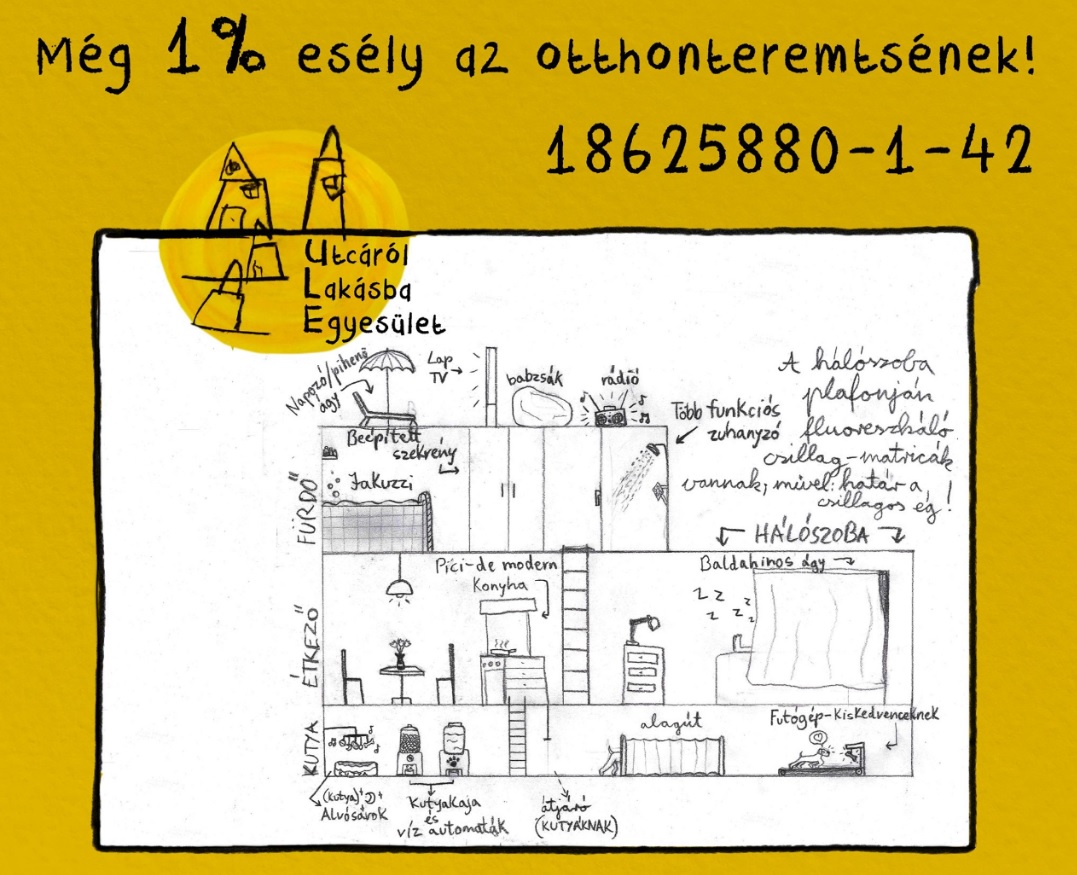 Még 1% esély az otthonteremtsének!
18625880-1-42
Utcáról
Lakásba
Egyesület
Napozó/pihenő
ágy
Lap
TV
babzsák
rádió
Több funkciós
zuhanyzó
A hálószoba
plafonján
fluoreszkáló
csillag-matricák
vannak, mivel: határ a
csillagos ég!
Beépített
szekrény
Jakuzzi
FÜRDŐ
HÁLÓSZOBA
Pici-de modern
Konyha
Baldahinos ágy
z z z z z z
ÉTKEZŐ
KUTYA
alagút
Futógép-Kiskedvenceknek
(kutya)
Alvósarok
Kutyakaja
és
víz automaták
átjáró
(KUTYÁKNAK)